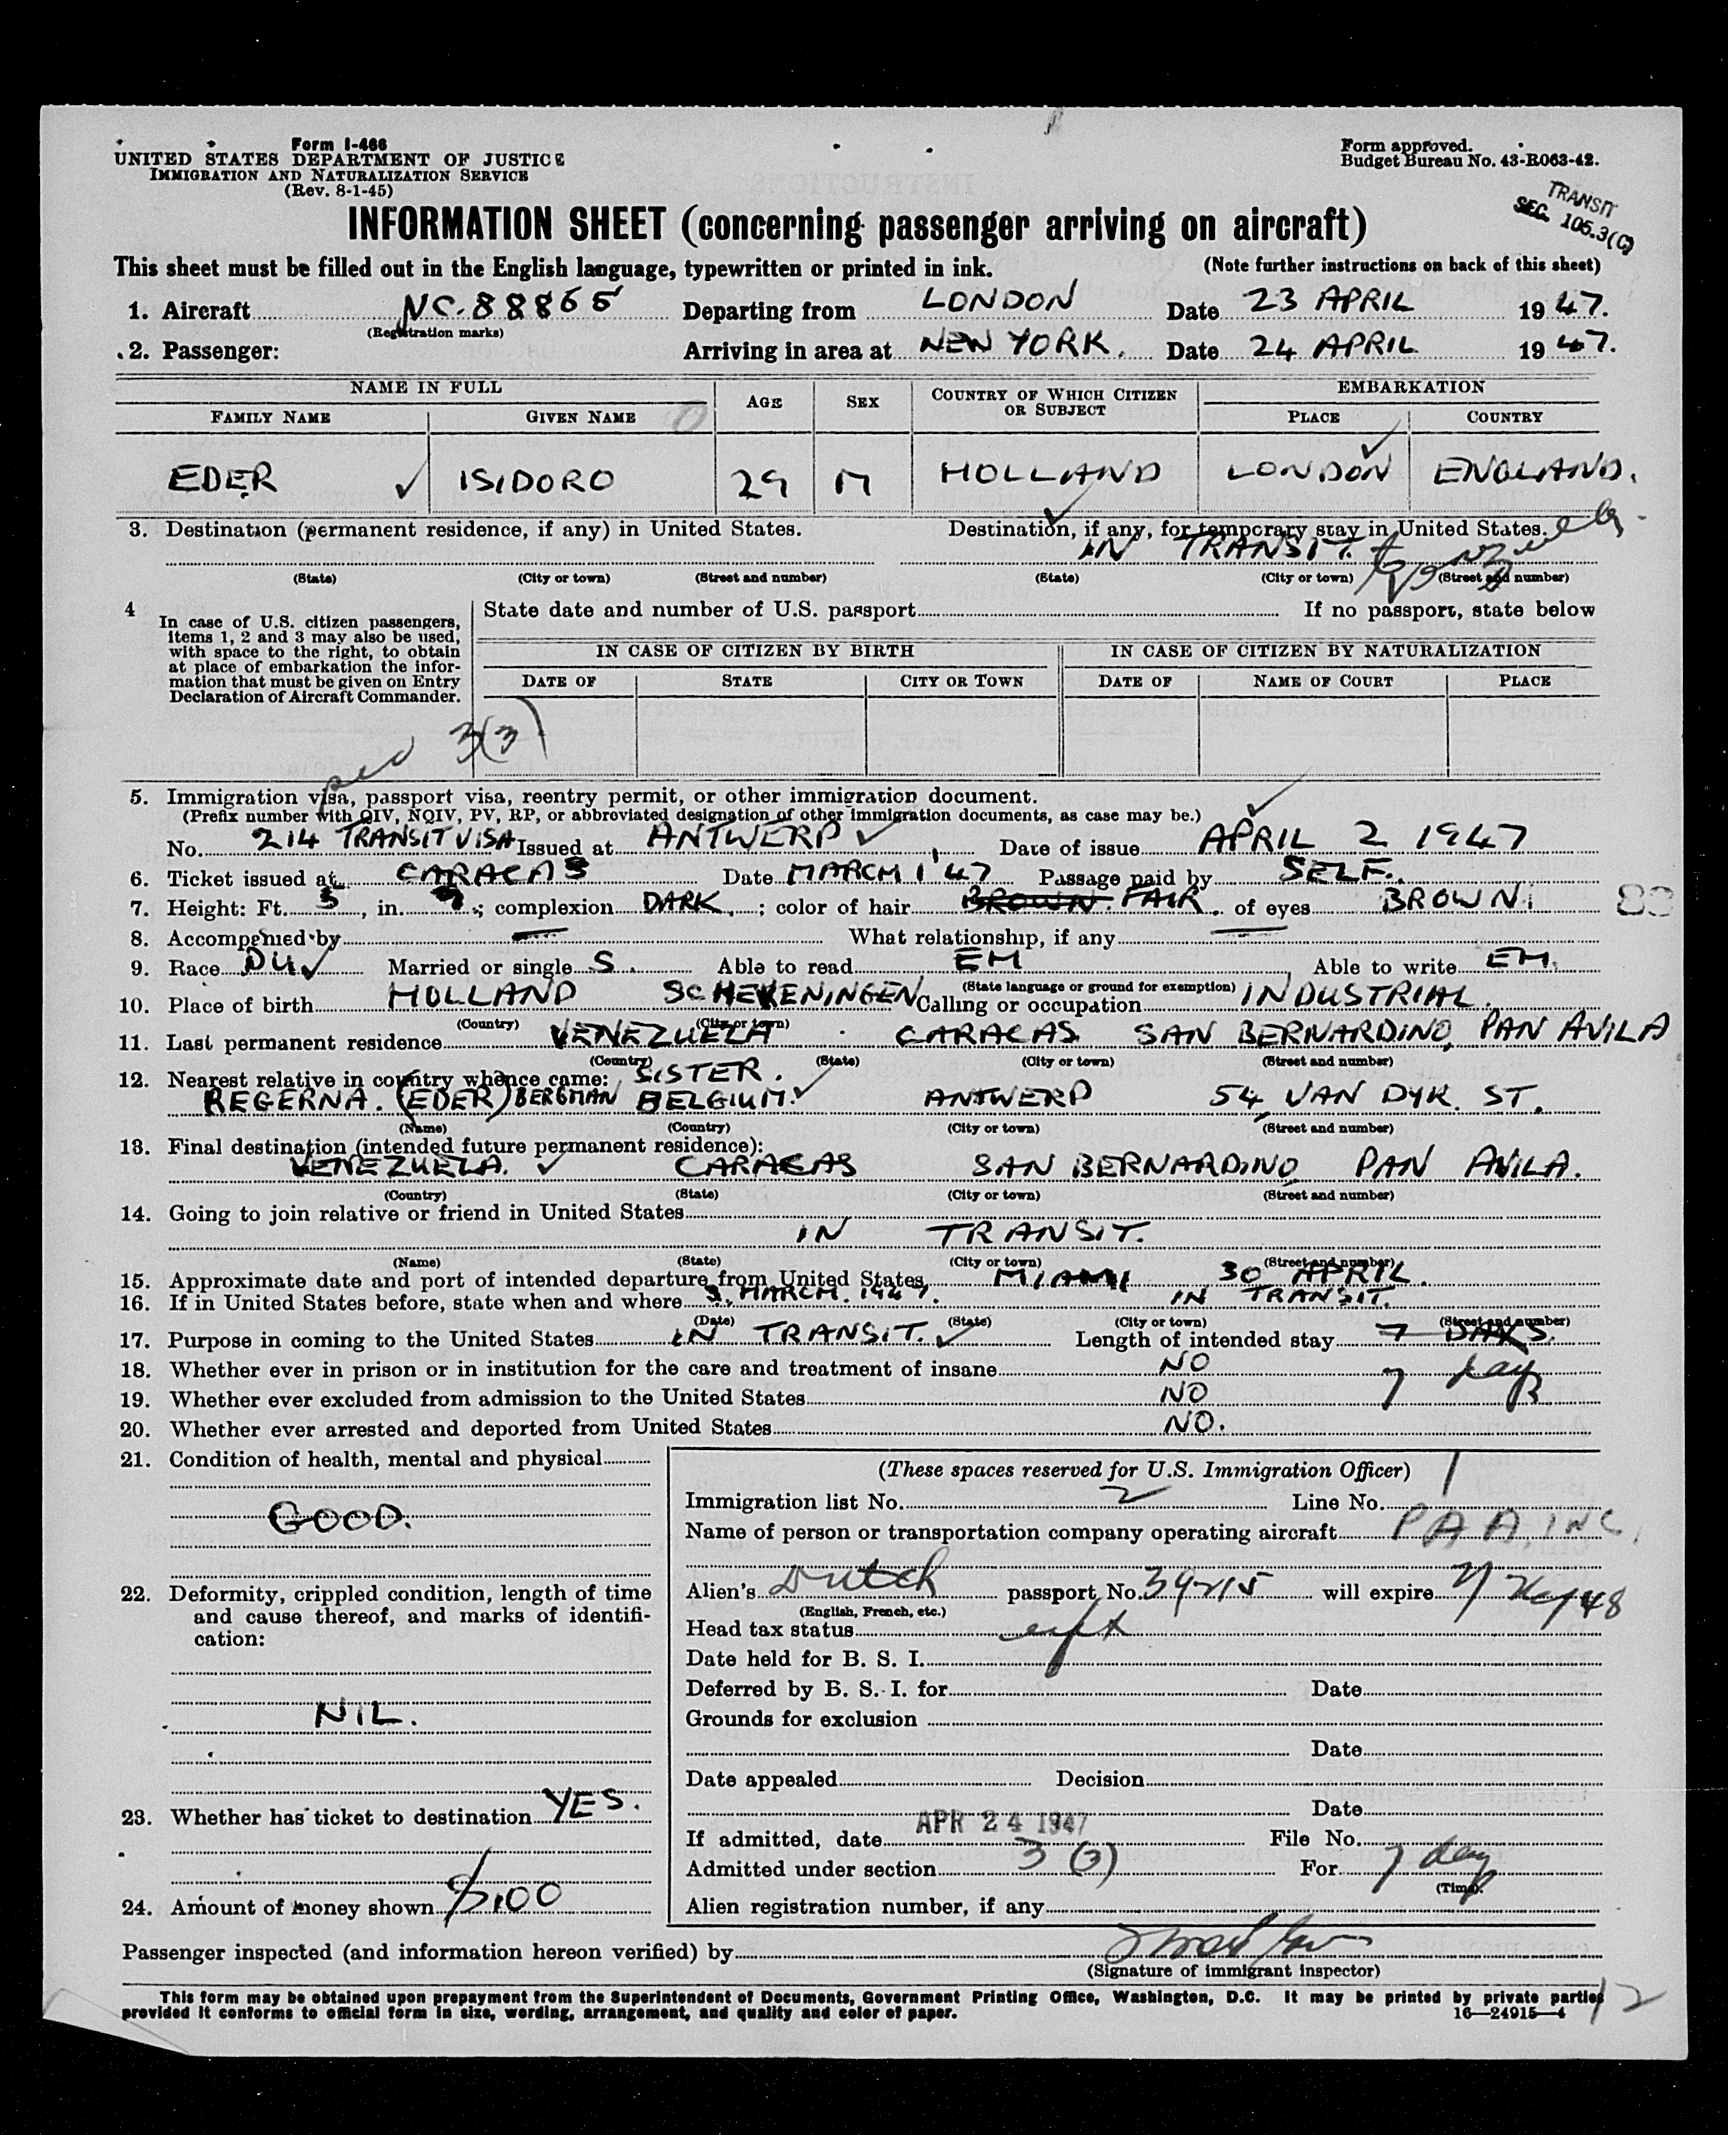 Form I-466
UNITED STATES DEPARTMENT OF JUSTICE
IMMIGRATION AND NATURALIZATION SERVICE
(Rev. 8-1-45)
Form approved.
Budget Bureau No. 43-R063-42.
TRANSIT
SEC. 105.3(C)
INFORMATION SHEET (concerning passenger arriving on aircraft)
This sheet must be filled out in the English language, typewritten or printed in ink. (Note further instructions on back of this sheet)
1. Aircraft NC-88865 Departing from LONDON Date 23 APRIL 1947.
(Registration marks)
2. Passenger: Arriving in area at NEW YORK. Date 24 APRIL 1947.
NAME IN FULL AGE SEX COUNTRY OF WHICH CITIZEN OR SUBJECT EMBARKATION
FAMILY NAME GIVEN NAME PLACE COUNTRY
EDER ISIDORO 29 M HOLLAND LONDON ENGLAND.
3. Destination (permanent residence, if any) in United States. Destination, if any, for temporary stay in United States.
IN TRANSIT. to Venezuela
(State) (City or town) (Street and number) (State) (City or town) (Street and number)
4 In case of U.S. citizen passengers, items 1, 2 and 3 may also be used, with space to the right, to obtain at place of embarkation the information that must be given on Entry Declaration of Aircraft Commander.
State date and number of U.S. passport If no passport, state below
IN CASE OF CITIZEN BY BIRTH IN CASE OF CITIZEN BY NATURALIZATION
DATE OF STATE CITY OR TOWN DATE OF NAME OF COURT PLACE
3(3)
5. Immigration visa, passport visa, reentry permit, or other immigration document.
(Prefix number with QIV, NQIV, PV, RP, or abbreviated designation of other immigration documents, as case may be.)
No. 214 TRANSIT VISA Issued at ANTWERP Date of issue APRIL 2 1947
6. Ticket issued at CARACAS Date MARCH 1 '47 Passage paid by SELF.
7. Height: Ft. 5, in. ; complexion DARK.; color of hair BROWN. FAIR. of eyes BROWN.
8. Accompanied by — What relationship, if any —
9. Race DU Married or single S. Able to read EH Able to write EH.
(State language or ground for exemption)
10. Place of birth HOLLAND SCHEVENINGEN Calling or occupation INDUSTRIAL.
(Country) (City or town)
11. Last permanent residence VENEZUELA CARACAS SAN BERNARDINO, PAN AVILA
(Country) (State) (City or town) (Street and number)
12. Nearest relative in country whence came: SISTER.
REGERNA. (EDER) BERGMAN BELGIUM. ANTWERP 54, VAN DYK. ST.
(Name) (Country) (City or town) (Street and number)
13. Final destination (intended future permanent residence):
VENEZUELA. CARACAS SAN BERNARDINO PAN AVILA.
(Country) (State) (City or town) (Street and number)
14. Going to join relative or friend in United States
IN TRANSIT.
(Name) (State) (City or town) (Street and number)
15. Approximate date and port of intended departure from United States, MIAMI 30 APRIL.
16. If in United States before, state when and where 3, MARCH. 1947. IN TRANSIT.
(Date) (State) (City or town) (Street and number)
17. Purpose in coming to the United States IN TRANSIT. Length of intended stay 7 DAYS.
18. Whether ever in prison or in institution for the care and treatment of insane NO 7 days
19. Whether ever excluded from admission to the United States NO
20. Whether ever arrested and deported from United States NO.
21. Condition of health, mental and physical
GOOD.
22. Deformity, crippled condition, length of time and cause thereof, and marks of identification:
NIL.
23. Whether has ticket to destination YES.
24. Amount of money shown $100
(These spaces reserved for U.S. Immigration Officer)
Immigration list No. 2 Line No. 1
Name of person or transportation company operating aircraft PAA, INC.
Alien's Dutch passport No. 39215 will expire 48
(English, French, etc.)
Head tax status
Date held for B. S. I.
Deferred by B. S. I. for Date
Grounds for exclusion
Date
Date appealed Decision
Date
If admitted, date APR 24 1947 File No.
Admitted under section 3 (3) For 7 days
(Time)
Alien registration number, if any
Passenger inspected (and information hereon verified) by
(Signature of immigrant inspector)
This form may be obtained upon prepayment from the Superintendent of Documents, Government Printing Office, Washington, D.C. It may be printed by private parties
provided it conforms to official form in size, wording, arrangement, and quality and color of paper. 16—24915—4